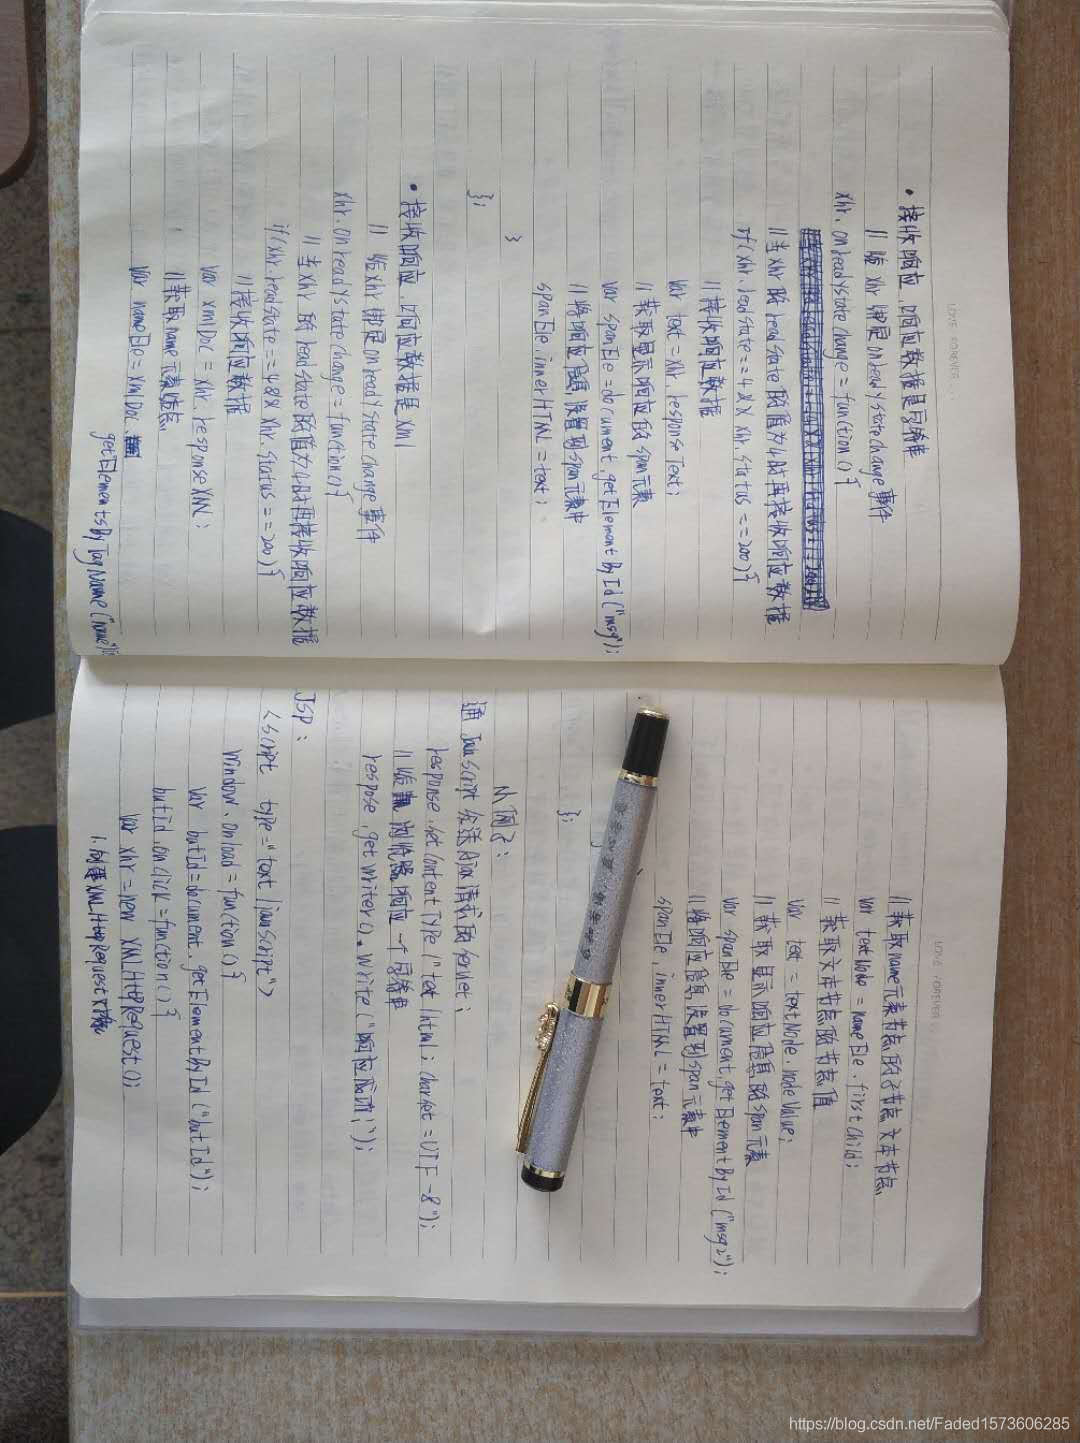 LOVE FOREVER
• 接收响应，响应数据是字符串
// 给xhr绑定onreadystatechange事件
xhr.onreadystatechange=function(){
// 当xhr的readState的值为4时再接收响应数据
if(xhr.readState==4&&xhr.status==200){
//接收响应数据
var text=xhr.responseText;
//获取显示响应的span元素
var spanEle=document.getElementById("msg");
//将响应信息设置到span元素中
spanEle.innerHTML=text;
}
};
• 接收响应，响应数据是xml
// 给xhr绑定onreadystatechange事件
xhr.onreadystatechange=function(){
// 当xhr的readState的值为4时再接收响应数据
if(xhr.readState==4&&xhr.status==200){
//接收响应数据
var xmlDoc=xhr.responseXML;
//获取name元素结点
var nameEle=xmlDoc.
getElementsByTagName("name")
LOVE FOREVER
//获取name元素节点的子节点 文本节点
var textNode=nameEle.firstChild;
//获取文本节点的节点值
var text=textNode.nodeValue;
//获取显示响应信息的span元素
var spanEle=document.getElementById("msg2");
//将响应信息设置到span元素中
spanEle.innerHTML=text;
};
小例子：
通JavaScript发送Ajax请求到servlet：
response.setContentType("text/html;charset=UTF-8");
//给浏览器响应一个字符串
respose.getWriter().write("响应成功!");
JSP：
<script type="text/javascript">
window.onload=function(){
var butId=document.getElementById("butId");
butid.onclick=function(){
var xhr=new XMLHttpRequest();
1.创建XMLHttpRequest对象
https://blog.csdn.net/Faded1573606285